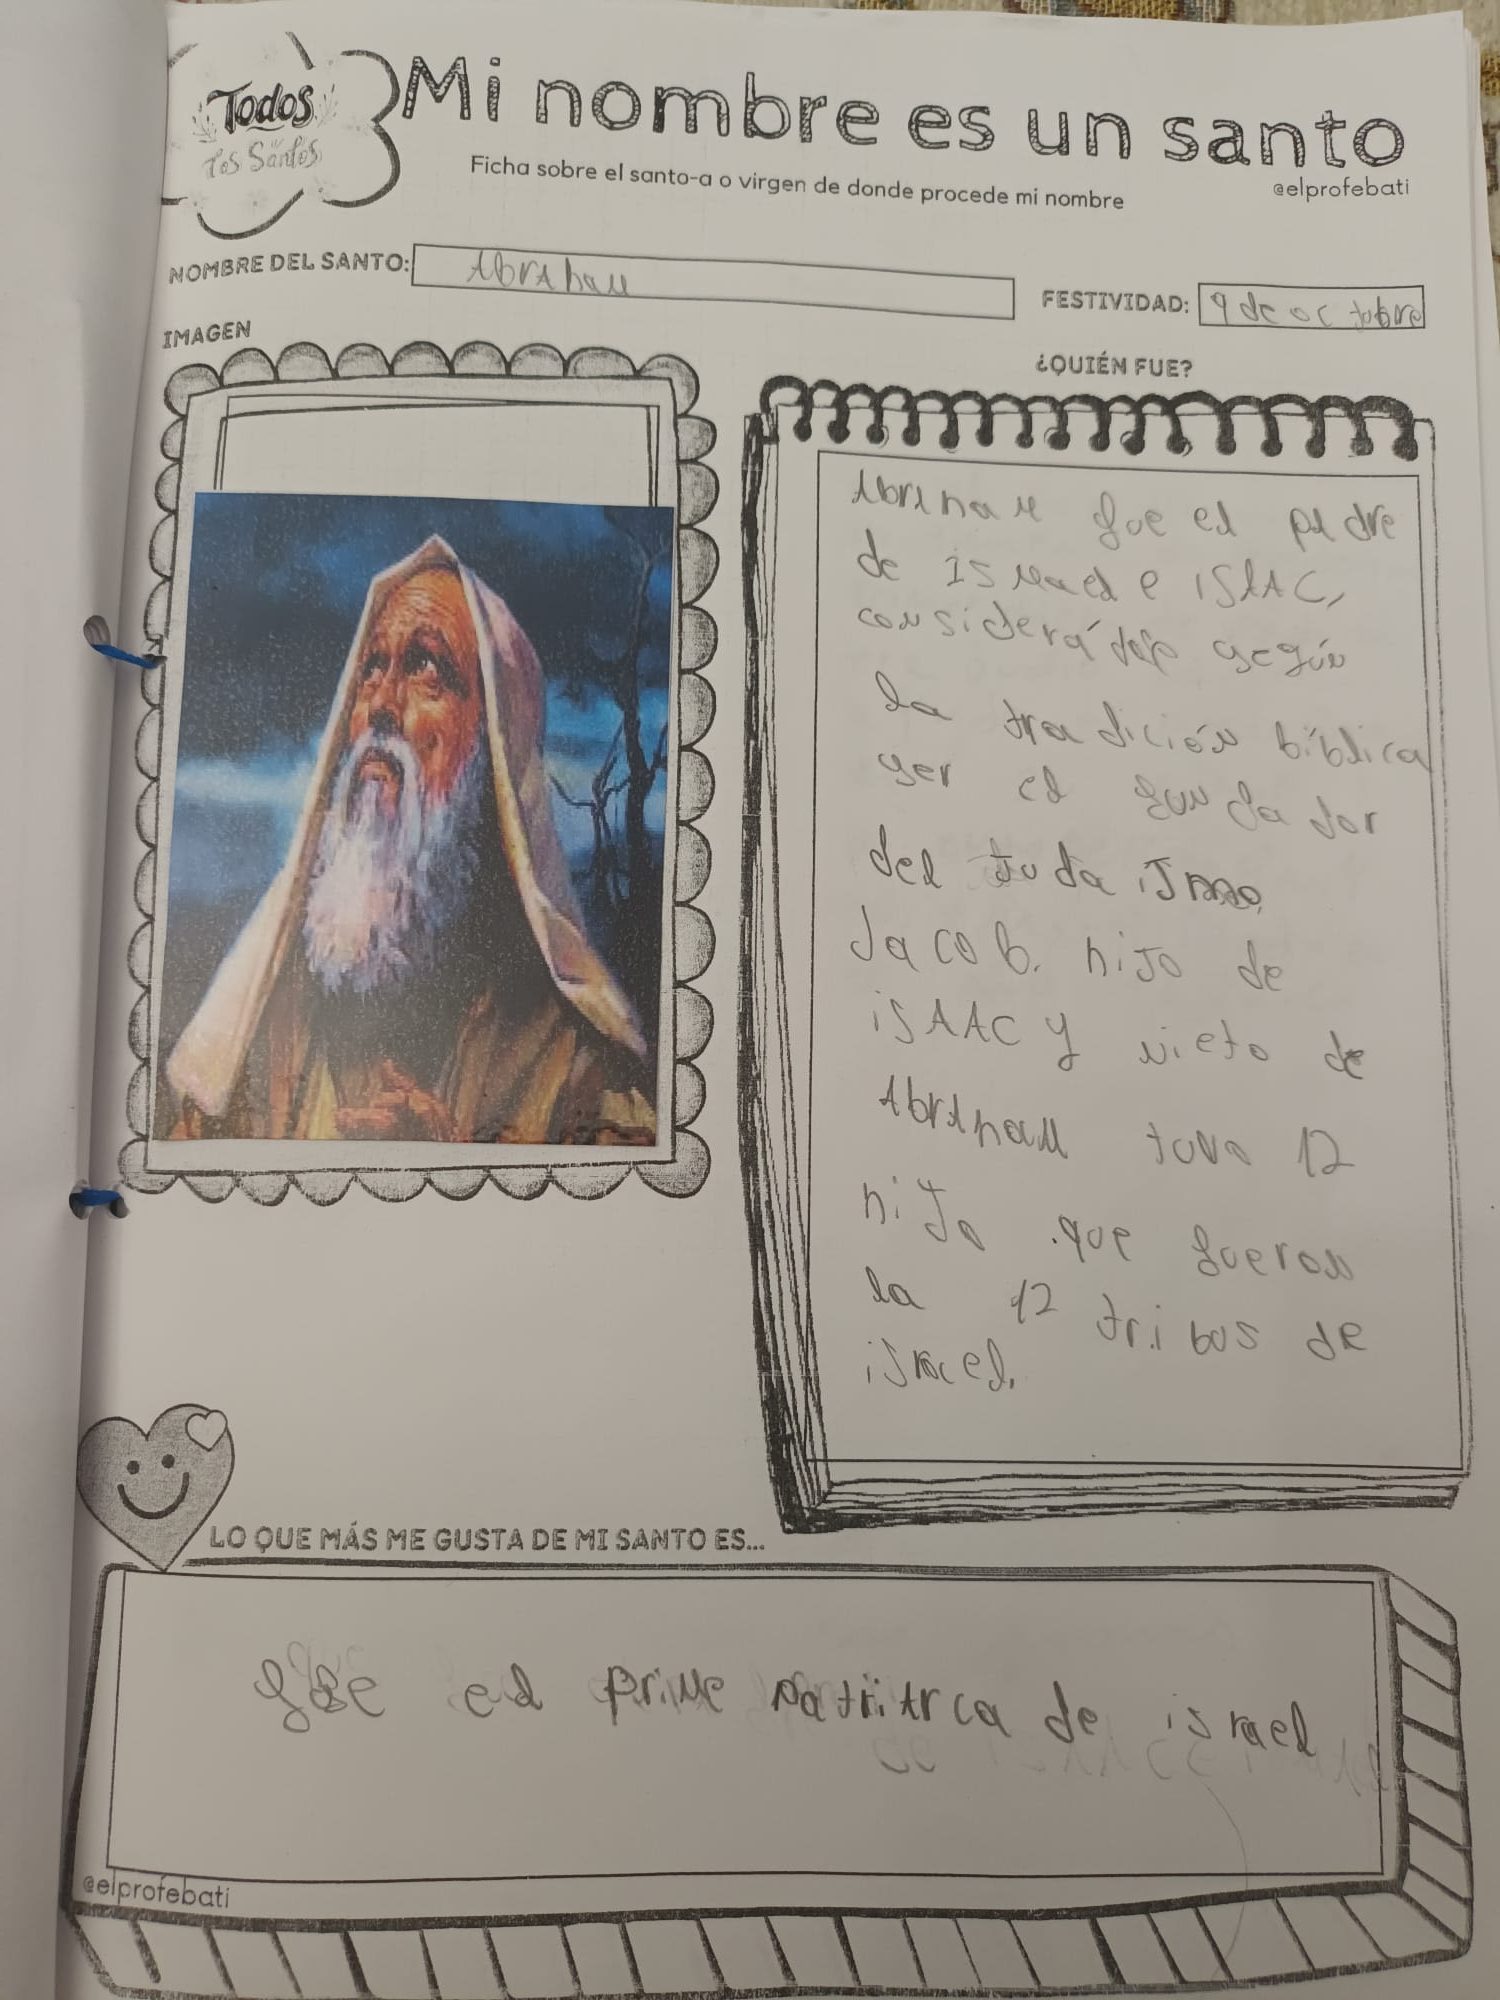 Todos
los Santos
Mi nombre es un santo
Ficha sobre el santo-a o virgen de donde procede mi nombre
@elprofebati
NOMBRE DEL SANTO: Abraham
FESTIVIDAD: 9 de octubre
IMAGEN
¿QUIÉN FUE?
Abraham fue el padre
de Ismael e ISAAC,
según
la tradición bíblica
ser el fundador
del Judaismo
Jacob. hijo de
iSAAC y nieto de
Abraham tuvo 12
hijo que fueron
la 12 tribus de
israel.
LO QUE MÁS ME GUSTA DE MI SANTO ES...
el prime de israel
@elprofebati